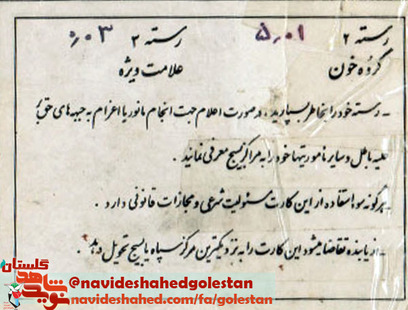 رسته ۲ ۵.۰۱ رسته ۲ ۵.۰۳
گروه خون علامت ویژه
- رسته خود را بخاطر بسپارید، در صورت اعلام جهت انجام مانور یا اعزام به جبهه های حق بر
علیه باطل و سایر مأموریتها خود را به مراکز بسیج معرفی نمائید.
- هرگونه سوء استفاده از این کارت مسئولیت شرعی و مجازات قانونی دارد.
- از یابنده تقاضا میشود این کارت را به نزدیکترین مرکز سپاه یا بسیج تحویل دهد.
نوید شاهد گلستان
@navideshahedgolestan
navideshahed.com/fa/golestan